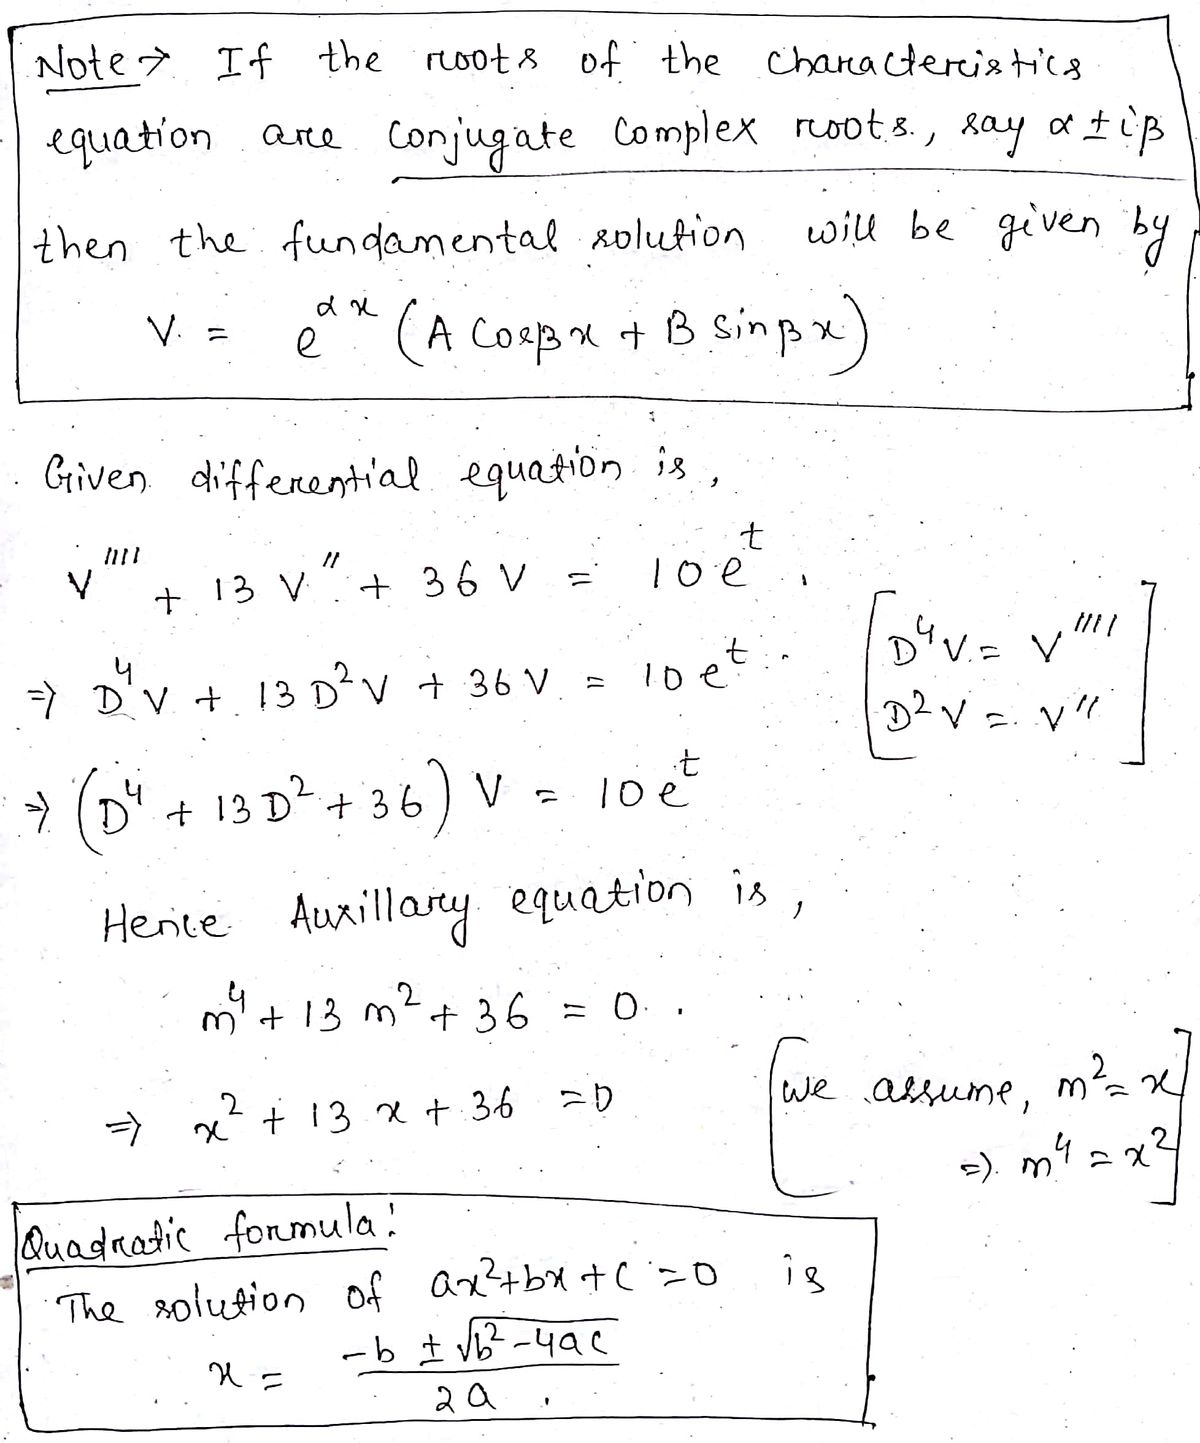 Note → If the roots of the characteristics
equation are conjugate complex roots., say α ± iβ
then the fundamental solution will be given by
V. = e^{αx} (A Cosβx + B sinβx)
Given differential equation is,
v'''' + 13 v'' + 36 v = 10e^t.
⇒ D⁴v + 13 D²v + 36 v = 10e^t
[D⁴v = v''''
D²v = v'']
⇒ (D⁴ + 13 D² + 36) v = 10e^t
Hence Auxillary equation is,
m⁴ + 13 m² + 36 = 0.
⇒ x² + 13 x + 36 = 0
[we assume, m² = x
⇒ m⁴ = x²]
Quadratic formula:
The solution of ax²+bx+c = 0 is
x = \frac{-b ± √(b²-4ac)}{2a}.